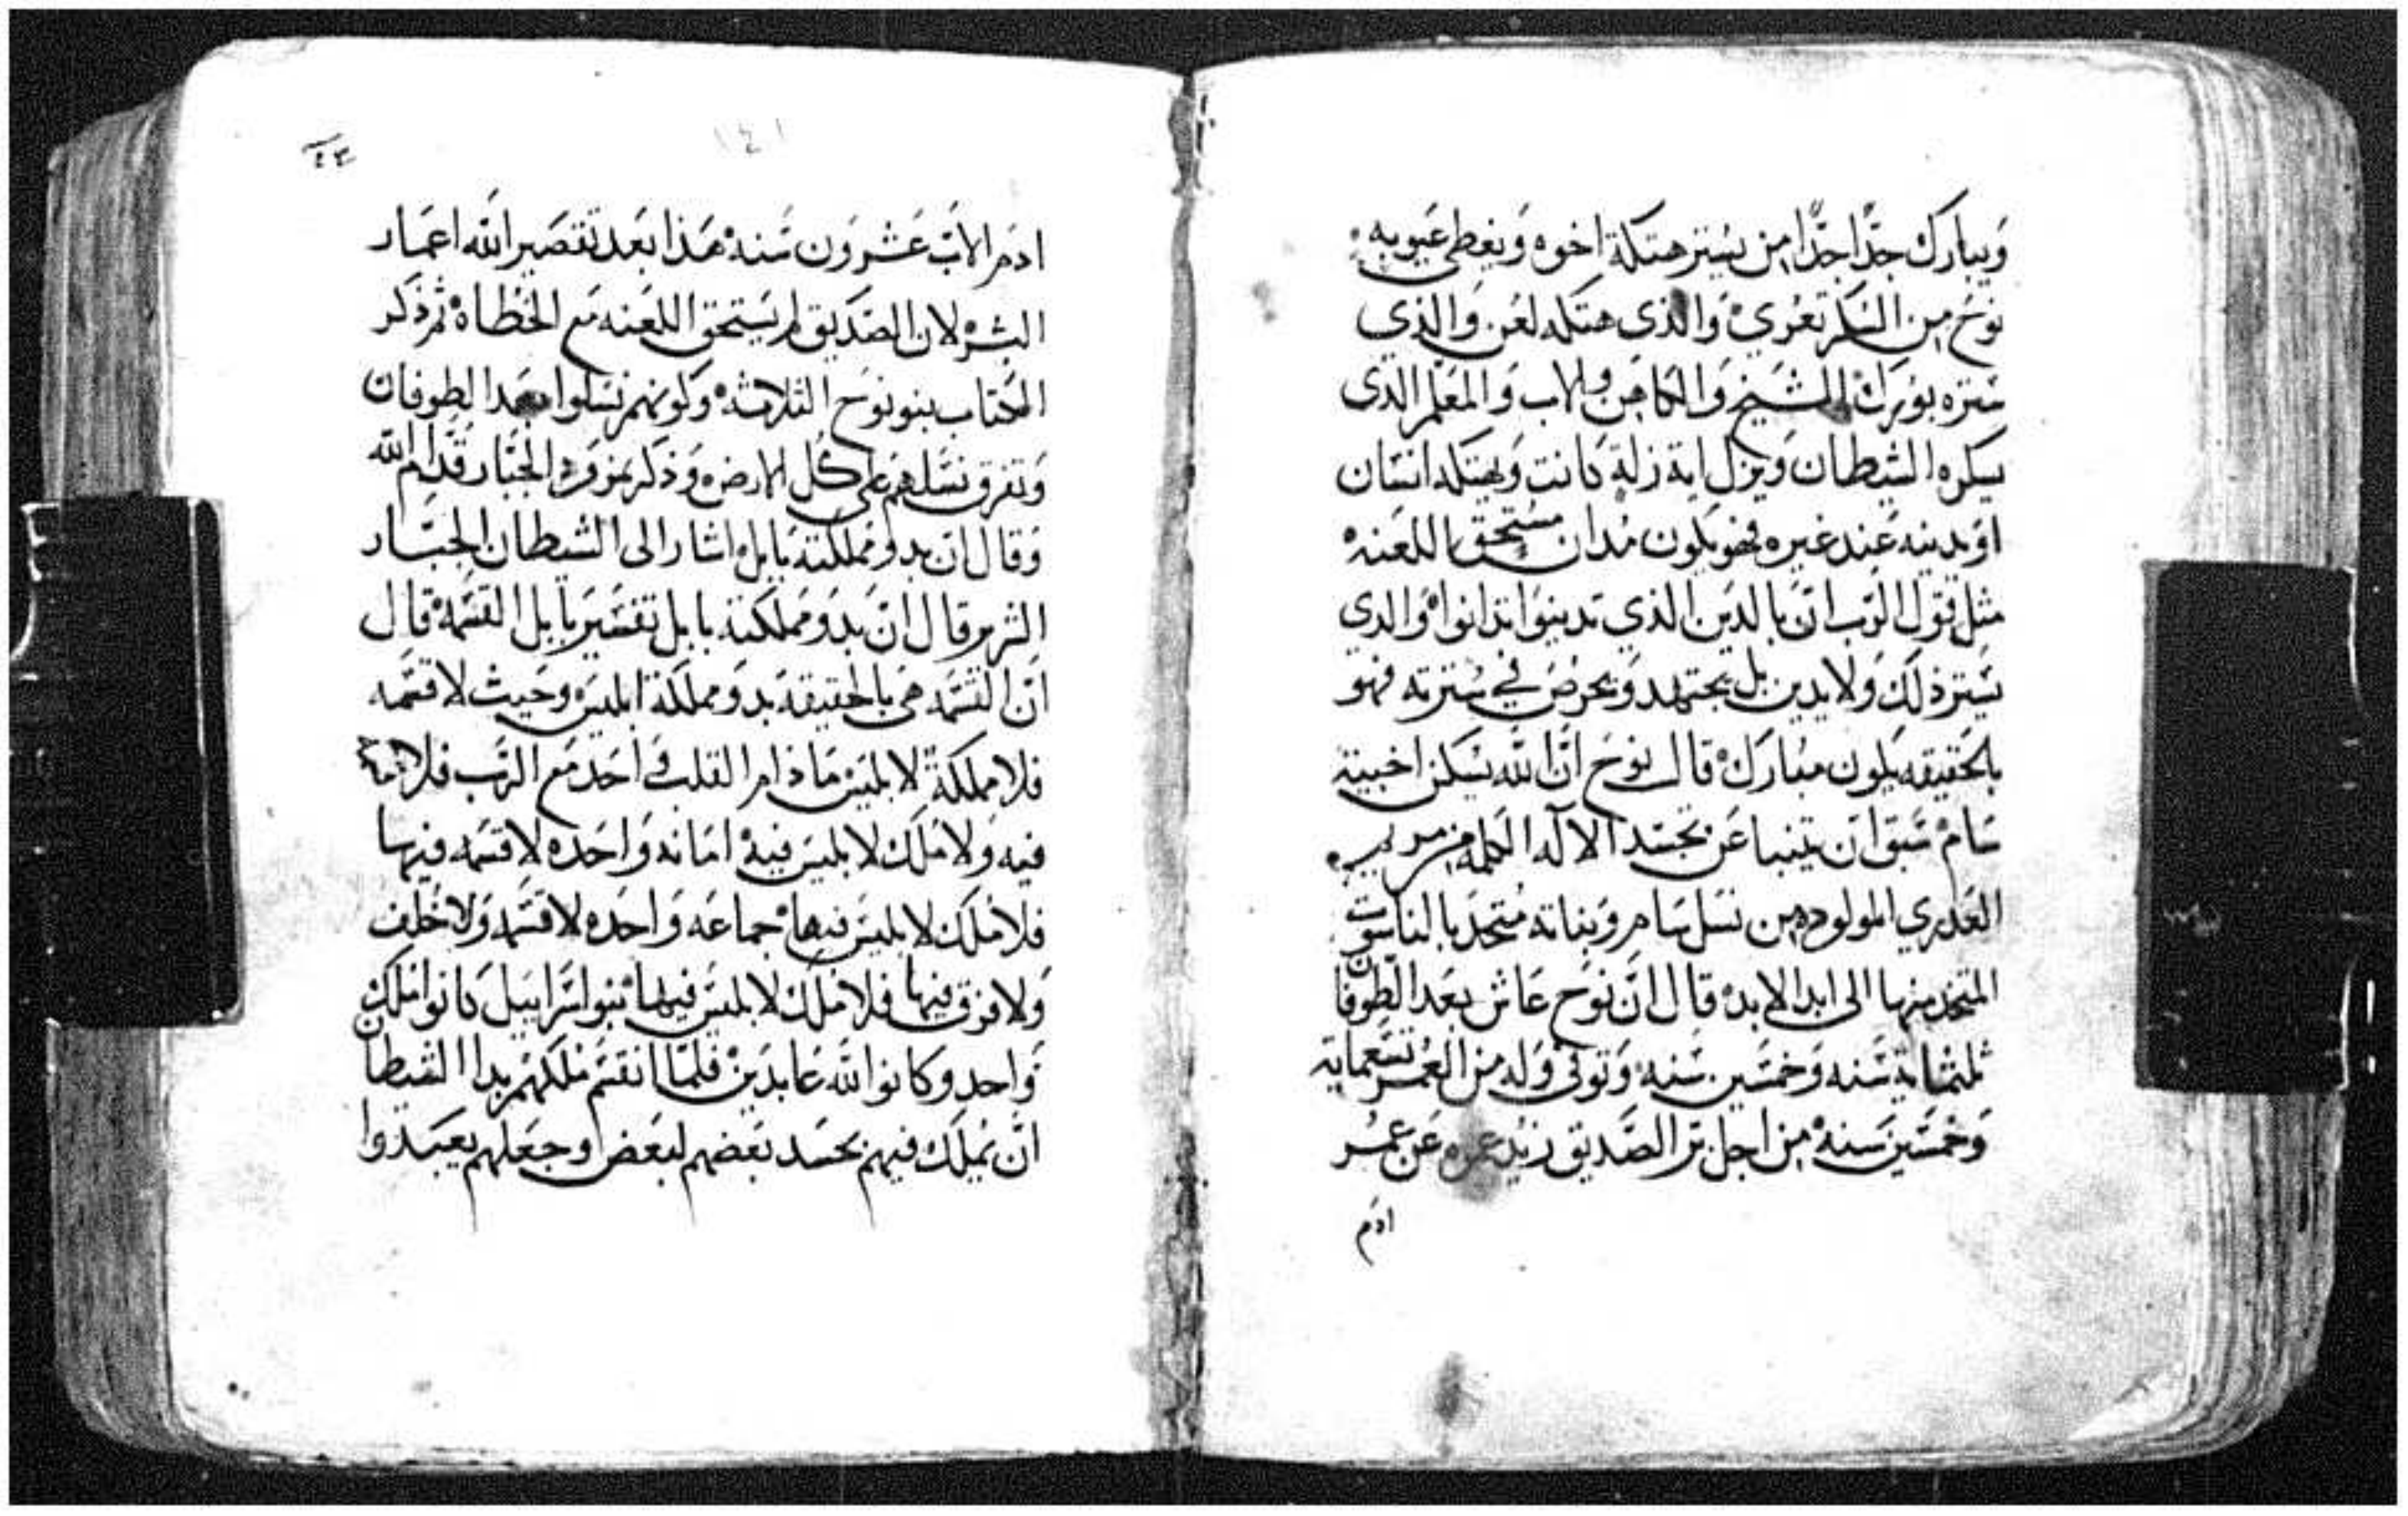 ويبارك جدًا جدًا من يستر هتكة اخوه ويغطي عيوبه
نوح من السكر تعري والذي هتكه لعن والذي
ستره بورك الشيخ والكاهن والاب والمعلم الذي
يسكره الشيطان ويزل اية زلة كانت ويهتكه انسان
او يدينه عند غيره فهو يكون مدان مستحق اللعنه
مثل قول الرب ان بالدين الذي تدينوا تدانوا والدي
يستر ذلك ولا يدين بل يجتهد ويحرص في سترته فهو
بالحقيقه يكون مبارك قال نوح ان الله يسكن اخبية
سام سبق ان يتنبا عن تجسد الاله الكلمه من مريم
العدري المولوده من نسل سام وبناته متحد بالناسوت
المتخد منها الى ابد الابد قال ان نوح عاش بعد الطوفان
ثلثماية سنه وخمسين سنه وتوفي وله من العمر تسعماية
وخمسين سنه من اجل بر الصديق زيد عمره عن عمر
ادم
٤٣
١٤١
ادم الاب عشرون سنه هذا بعد تقصير الله اعمار
البشر لان الصديق لم يستحق اللعنه مع الخطاه ثم ذكر
الكتاب بنو نوح الثلاثه وكونهم نسلوا بعد الطوفان
وتفرق نسلهم على كل الارض وذكر نمرود الجبار قدام الله
وقال ان بدو مملكته بابل اشار الى الشيطان الجبار
الشرير قال ان بدو مملكته بابل تفسير بابل القسمه قال
ان القسمه هي بالحقيقه بدو مملكة ابليس وحيث لا قسمه
فلا مملكة لابليس ما دام القلب في احد مع الرب فلا
فيه ولا ملك لابليس فيه امانه واحده لا قسمه فيها
فلا ملك لابليس فيها جماعه واحده لا قسمه ولا خلف
ولا فرق فيها فلا ملك لابليس فيها بنو اسراييل كانوا ملك
واحد وكانوا لله عابدين فلما انقسم ملكهم بدا الشيطان
ان يملك فيهم بحسد بعضهم لبعض وجعلهم يعبدوا